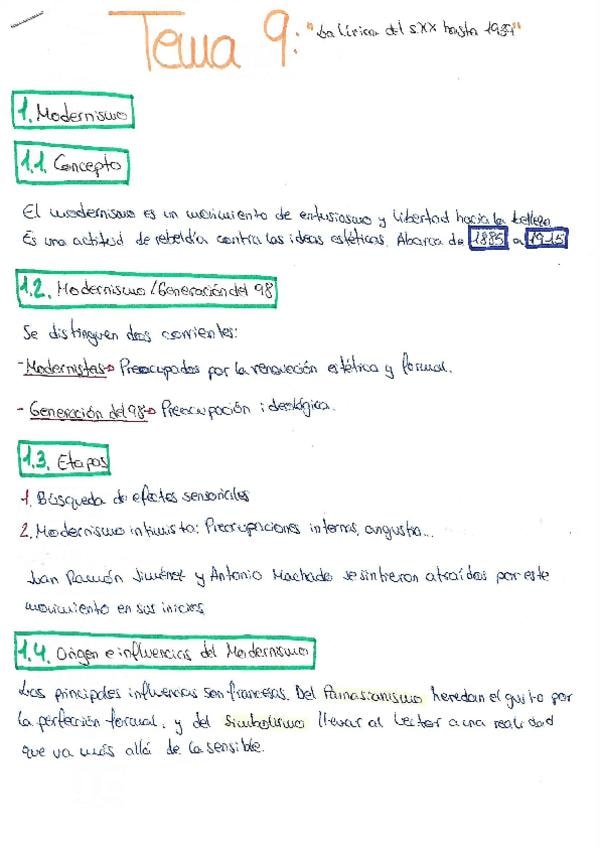 Tema 9: "La lírica del s.XX hasta 1939"
1. Modernismo
1.1. Concepto
El modernismo es un movimiento de entusiasmo y libertad hacia la belleza
Es una actitud de rebeldía contra las ideas estéticas. Abarca de 1885 a 1915
1.2. Modernismo / Generación del 98
Se distinguen dos corrientes:
- Modernistas → Preocupados por la renovación estética y formal.
- Generación del 98 → Preocupación ideológica.
1.3. Etapas
1. Búsqueda de efectos sensoriales
2. Modernismo intimista: Preocupaciones internas, angustia...
Juan Ramón Jiménez y Antonio Machado se sintieron atraídos por este
movimiento en sus inicios
1.4. Origen e influencias del Modernismo
Las principales influencias son francesas. Del Parnasianismo heredan el gusto por
la perfección formal, y del Simbolismo llevar al lector a una realidad
que va más allá de lo sensible.